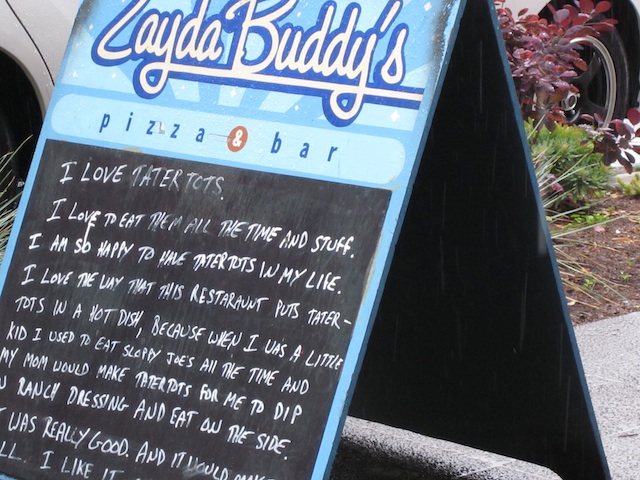 Zayda Buddy's
pizza & bar
I LOVE TATER TOTS.
I LOVE TO EAT THEM ALL THE TIME AND STUFF.
I AM SO HAPPY TO HAVE TATERTOTS IN MY LIFE.
I LOVE THE WAY THAT THIS RESTARAUNT PUTS TATER-
TOTS IN A HOT DISH, BECAUSE WHEN I WAS A LITTLE
KID I USED TO EAT SLOPPY JOES All THE TIME AND
MY MOM WOULD MAKE TATERTOTS FOR ME TO DIP
RANCH DRESSING AND EAT ON THE SIDE.
WAS REALLY GOOD. AND IT WOULD
I LIKE IT